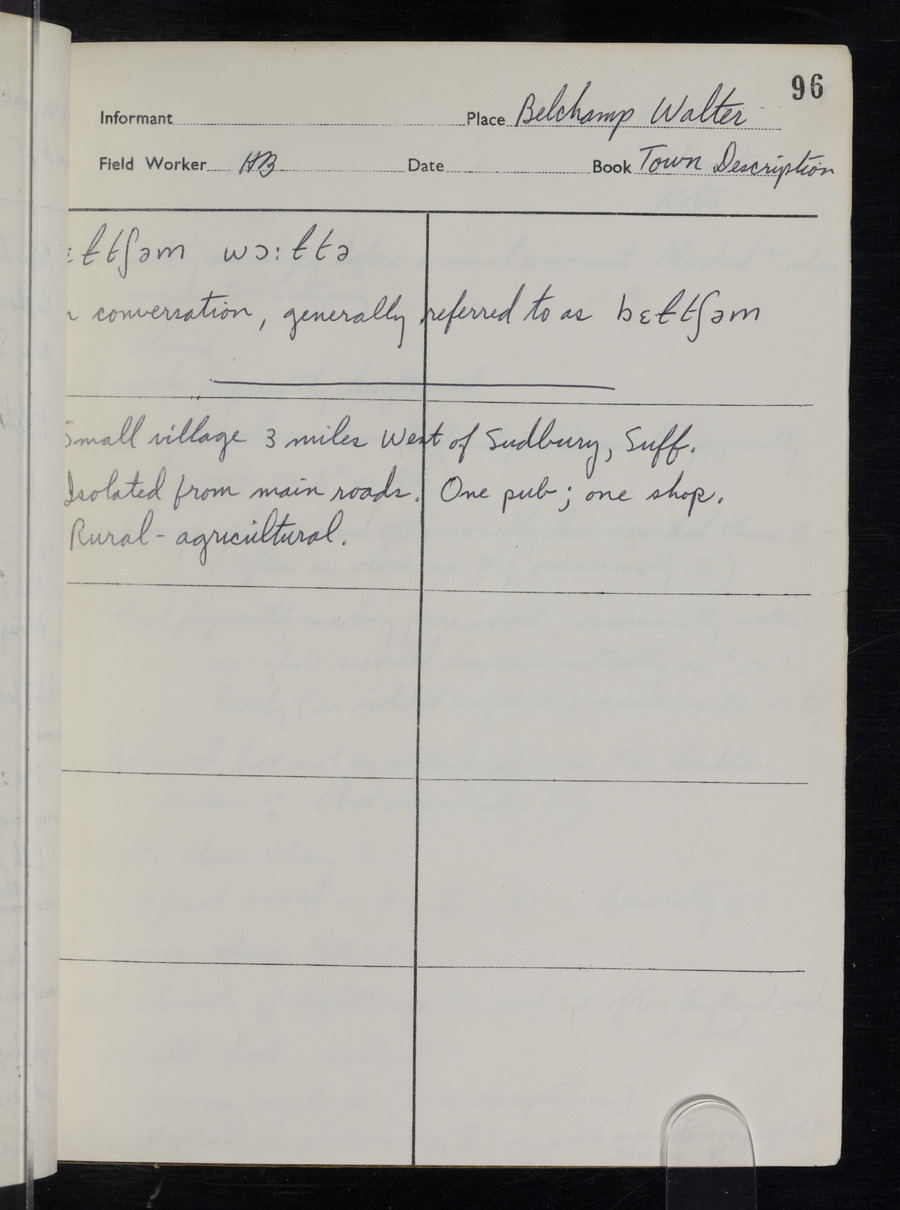 96
Informant Place Belchamp Walter
Field Worker HB Date Book Town Description
ɛɫtʃəm wɔ:ɫtə
conversation, generally referred to as bɛɫtʃəm
Small village 3 miles West of Sudbury, Suff.
Isolated from main roads. One pub; one shop.
Rural-agricultural.